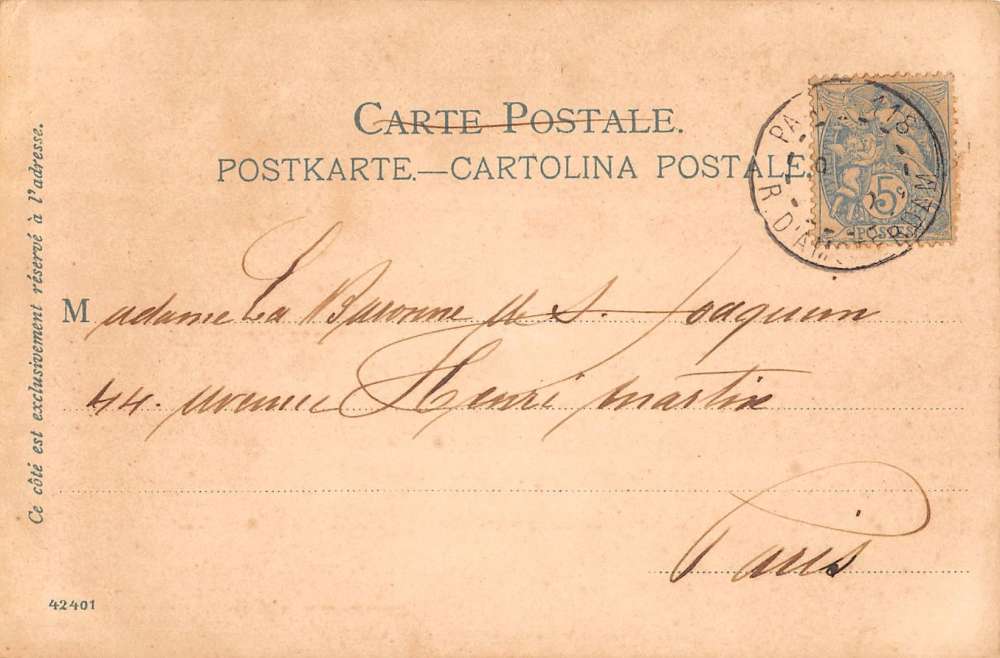 CARTE POSTALE.
POSTKARTE.—CARTOLINA POSTALE.
PARIS 118
R. D'AMSTERDAM
5c
POSTES
Ce côté est exclusivement réservé à l'adresse.
Madame La Baronne de S. Joaquim
44. avenue Henri Martin
Paris
42401